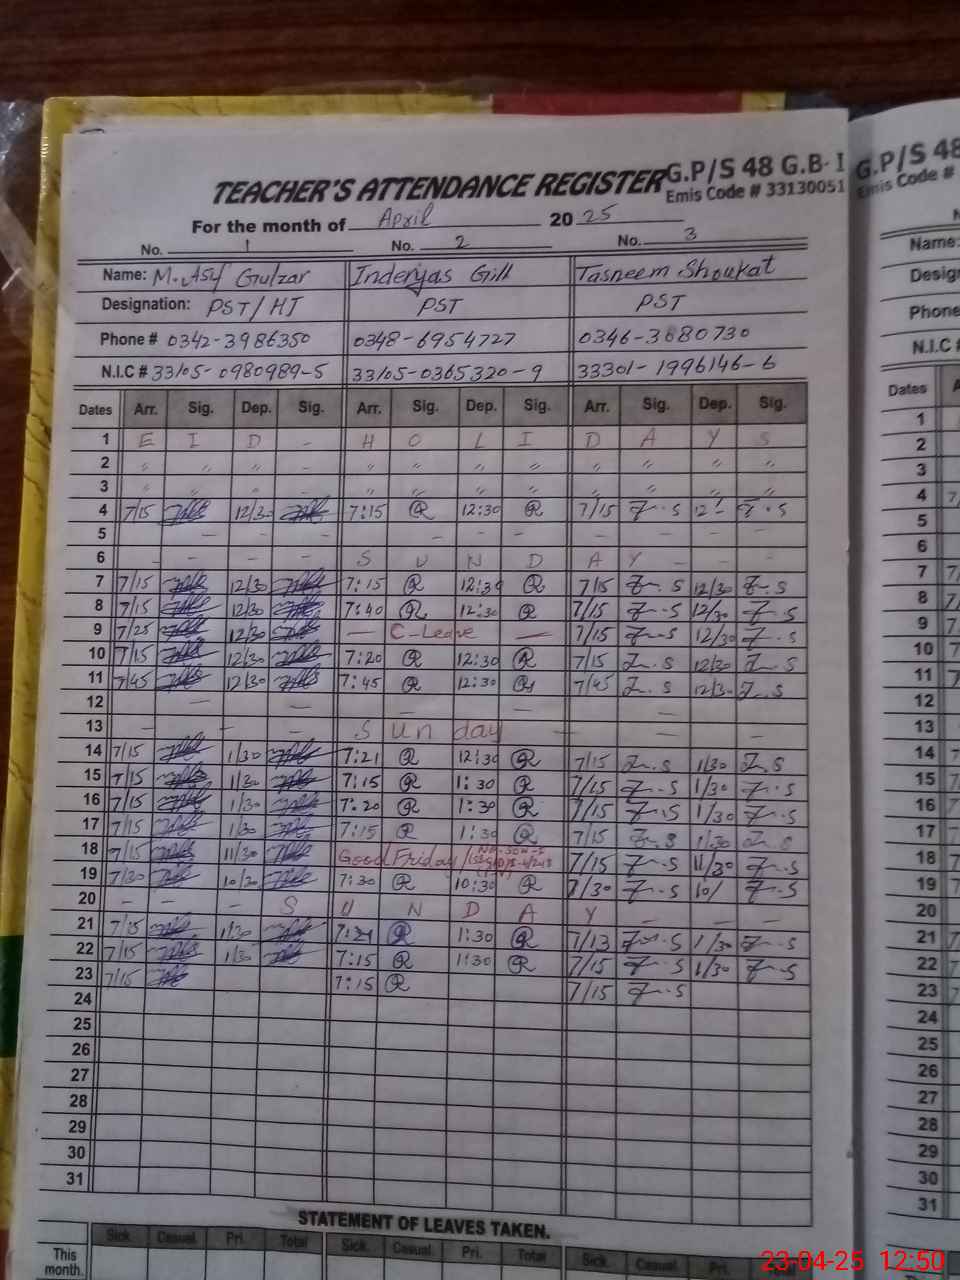 TEACHER'S ATTENDANCE REGISTER G.P/S 48 G.B-I
Emis Code # 33130051
For the month of April 20 25
No. 1 No. 2 No. 3
Name: M. Asif Gulzar Inderyas Gill Tasneem Shoukat
Designation: PST/HT PST PST
Phone # 0342-3986350 0348-6954727 0346-3680730
N.I.C # 33105-0980989-5 33105-0365320-9 33301-1996146-6
Dates Arr. Sig. Dep. Sig. Arr. Sig. Dep. Sig. Arr. Sig. Dep. Sig.
1 E I D - H O L I D A Y S
2 " " " - " " " " " " " "
3 " " " - " " " " " " " "
4 7/15 12/30 7:15 R 12:30 R 7/15 S S
5 - - - - - - - -
6 - - - S U N D A Y - - -
7 7/15 12/30 7:15 R 12:30 R 7/15 S 12/30 S
8 7/15 12/30 7:40 R 12:30 R 7/15 S 12/30 S
9 7/25 12/30 — C-Leave — 7/15 S 12/30 S
10 7/15 12/30 7:20 R 12:30 R 7/15 S 12/30 S
11 7/45 12/30 7:45 R 12:30 R 7/45 S 12/30 S
12 — — — — — —
13 - - - Sunday — — -
14 7/15 1/30 7:21 R 12:30 R 7/15 S 1/30 S
15 7/15 1/30 7:15 R 1:30 R 7/15 S 1/30 S
16 7/15 1/30 7:20 R 1:30 R 7/15 S 1/30 S
17 7/15 1/30 7:15 R 1:30 R 7/15 S 1/30 S
18 7/15 11/30 Good Friday 7/15 S 11/30 S
19 7/30 10/30 7:30 R 10:30 R 7/30 S 10/ S
20 - - - S U N D A Y - - -
21 7/15 1/30 7:21 R 1:30 R 7/13 S 1/30 S
22 7/15 1/30 7:15 R 1:30 R 7/15 S 1/30 S
23 7/15 7:15 R 7/15 S
24
25
26
27
28
29
30
31
STATEMENT OF LEAVES TAKEN.
Sick. Casual. Pri. Total Sick. Casual. Pri. Total Sick. Casual. Pri.
This month.
G.P/S 48
Emis Code #
Name:
Phone
N.I.C #
Dates
1
2
3
4
5
6
7
8
9
10
11
12
13
14
15
16
17
18
19
20
21
22
23
24
25
26
27
28
29
30
31
23-04-25 12:50